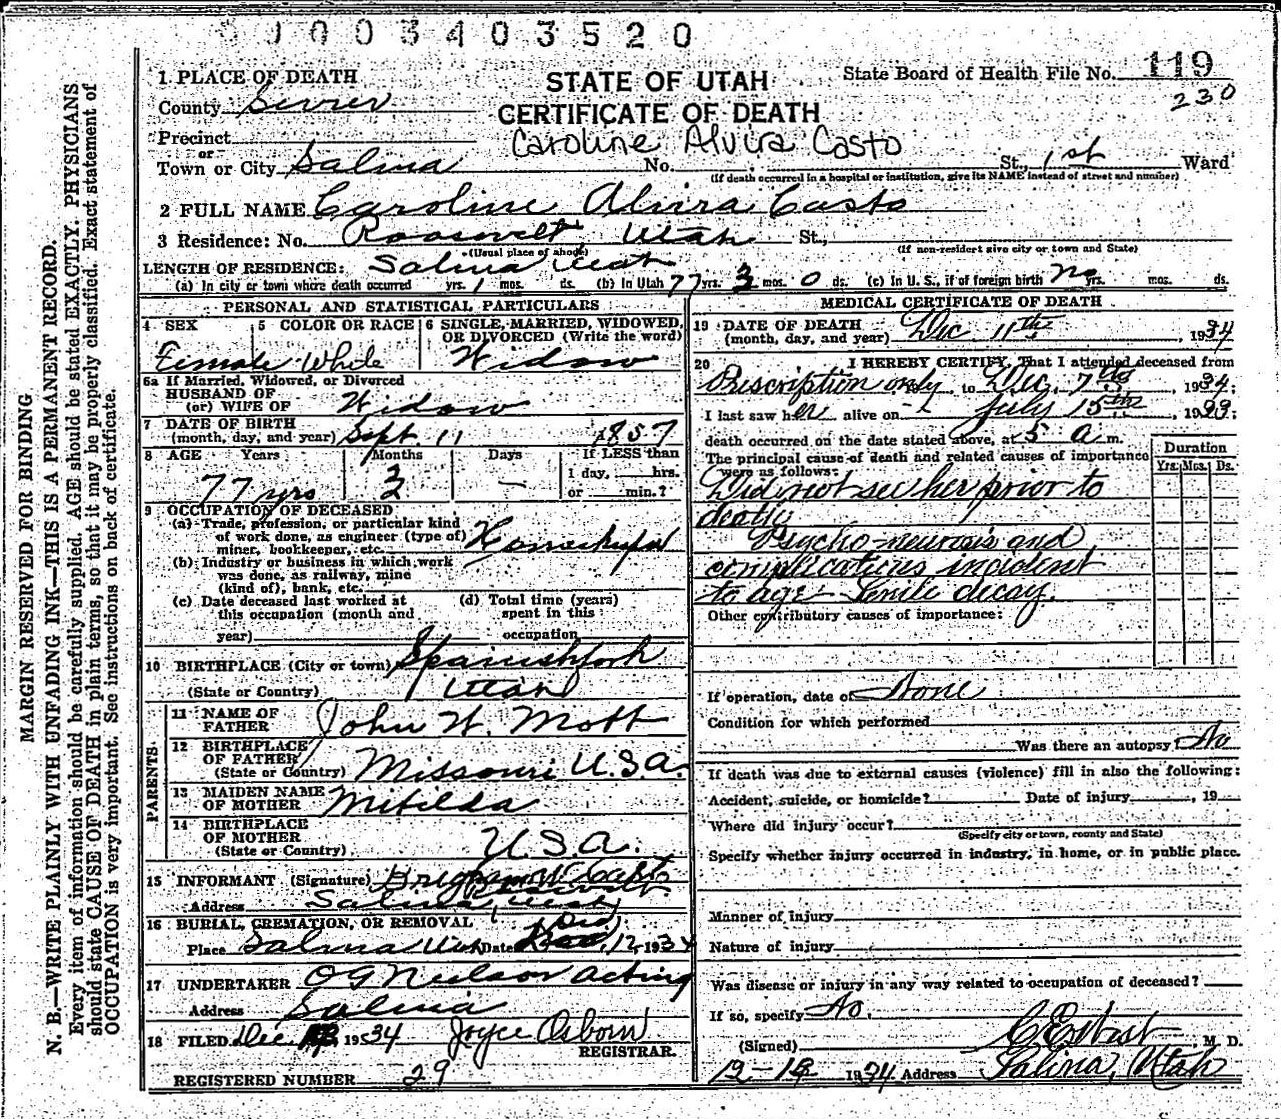 0003403520
1 PLACE OF DEATH
STATE OF UTAH
State Board of Health File No. 119
County Sevier
CERTIFICATE OF DEATH
230
Precinct
Caroline Alvira Casto
or
Town or City Salina No. St., 1st Ward
(If death occurred in a hospital or institution, give its NAME instead of street and number)
2 FULL NAME Caroline Alvira Casto
3 Residence: No. Roosevelt Utah St.,
(Usual place of abode) (If non-resident give city or town and State)
LENGTH OF RESIDENCE: Salina Utah
(a) In city or town where death occurred yrs. 1 mos. ds. (b) In Utah 77 yrs. 3 mos. 0 ds. (c) In U. S., if of foreign birth no yrs. mos. ds.
PERSONAL AND STATISTICAL PARTICULARS
4 SEX 5 COLOR OR RACE 6 SINGLE, MARRIED, WIDOWED, OR DIVORCED (Write the word)
Female White Widow
6a If Married, Widowed, or Divorced
HUSBAND OF
(or) WIFE OF Widow
7 DATE OF BIRTH
(month, day, and year) Sept. 11 1857
8 AGE Years Months Days If LESS than
1 day, hrs.
77 yrs 3 — or min.?
9 OCCUPATION OF DECEASED
(a) Trade, profession, or particular kind
of work done, as engineer (type of)
miner, bookkeeper, etc.
(b) Industry or business in which work
was done, as railway, mine
(kind of), bank, etc.
(c) Date deceased last worked at
this occupation (month and
year)
(d) Total time (years)
spent in this
occupation
10 BIRTHPLACE (City or town) Spanishfork
(State or Country) Utah
PARENTS
11 NAME OF
FATHER John W. Mott
12 BIRTHPLACE
OF FATHER
(State or Country) Missouri U.S.A.
13 MAIDEN NAME
OF MOTHER Mitilda
14 BIRTHPLACE
OF MOTHER
(State or Country) U.S.A.
15 INFORMANT (Signature) Brigham Casto
Address Salina, Utah
16 BURIAL, CREMATION, OR REMOVAL
Place Salina Utah Date Dec. 12, 1934
17 UNDERTAKER O G Neilson acting
Address Salina
18 FILED Dec 1934 Joyce Osborn
REGISTRAR.
REGISTERED NUMBER 29
MEDICAL CERTIFICATE OF DEATH
19 DATE OF DEATH
(month, day, and year) Dec. 11th, 1934
20 I HEREBY CERTIFY, That I attended deceased from
Prescription only to Dec. 7th, 1934;
I last saw her alive on July 15th, 19
death occurred on the date stated above, at 5 a m.
The principal cause of death and related causes of importance
were as follows:
Duration
Yrs. Mos. Ds.
Did not see her prior to
death
Psycho-neurosis and
complications incident
to age - Senile decay.
Other contributory causes of importance:
If operation, date of None
Condition for which performed
Was there an autopsy No
If death was due to external causes (violence) fill in also the following:
Accident, suicide, or homicide? Date of injury , 19
Where did injury occur?
(Specify city or town, county and State)
Specify whether injury occurred in industry, in home, or in public place.
Manner of injury
Nature of injury
Was disease or injury in any way related to occupation of deceased?
If so, specify No.
(Signed) , M. D.
12-12 1934 Address Salina, Utah
MARGIN RESERVED FOR BINDING
N. B.—WRITE PLAINLY WITH UNFADING INK—THIS IS A PERMANENT RECORD.
Every item of information should be carefully supplied. AGE should be stated EXACTLY. PHYSICIANS
should state CAUSE OF DEATH in plain terms, so that it may be properly classified. Exact statement of
OCCUPATION is very important. See instructions on back of certificate.